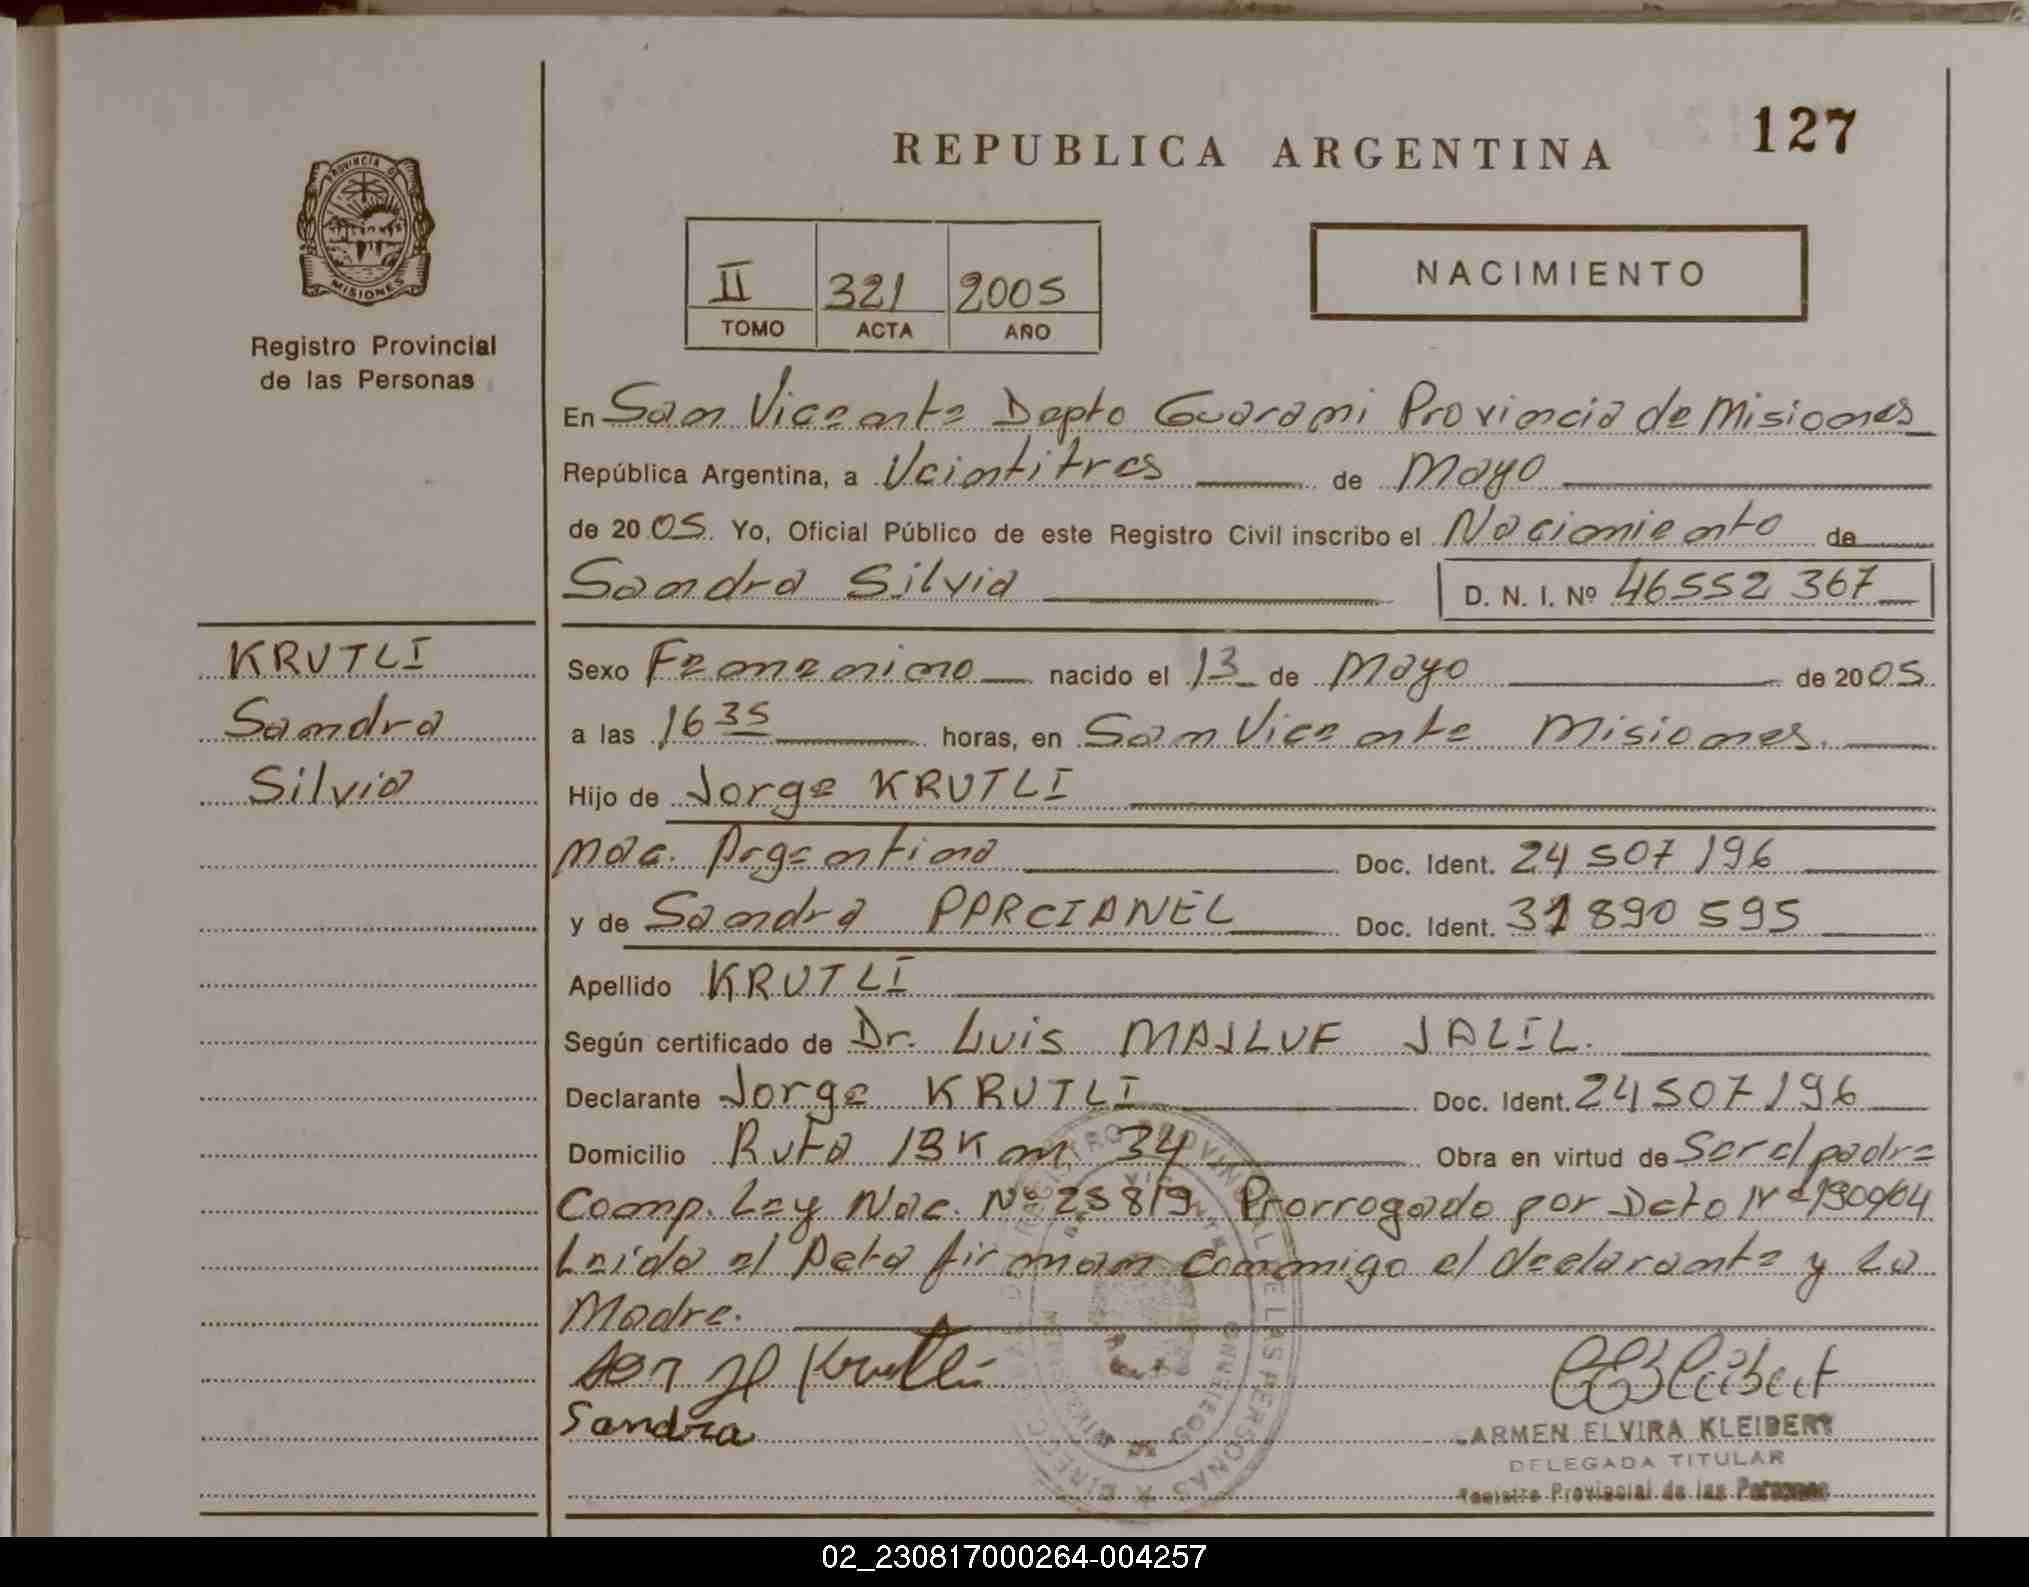 127
REPUBLICA ARGENTINA
PROVINCIA DE
MISIONES
NACIMIENTO
II 321 2005
TOMO ACTA AÑO
Registro Provincial
de las Personas
En San Vicente Depto Guarani Provincia de Misiones
República Argentina, a Veintitres de Mayo
de 2005. Yo, Oficial Público de este Registro Civil inscribo el Nacimiento de
Sandra Silvia D. N. I. Nº 46552 367
KRUTLI
Sandra
Silvia
Sexo Femenino nacido el 13 de Mayo de 2005
a las 16 35 horas, en San Vicente Misiones.
Hijo de Jorge KRUTLI
Nac. Argentina Doc. Ident. 24 507 196
y de Sandra PARCIANEL Doc. Ident. 31 890 595
Apellido KRUTLI
Según certificado de Dr. Luis MAJLUF JALIL.
Declarante Jorge KRUTLI Doc. Ident. 24 507 196
Domicilio Ruta 13 Km 34 Obra en virtud de Ser el padre
Comp. Ley Nac. Nº 25819 Prorrogado por Dcto Nº 190/04
Leida el Acta firman conmigo el declarante y La
Madre.
Krutli
Sandra
ARMEN ELVIRA KLEIBERT
DELEGADA TITULAR
Registro Provincial de las Personas
02_230817000264-004257